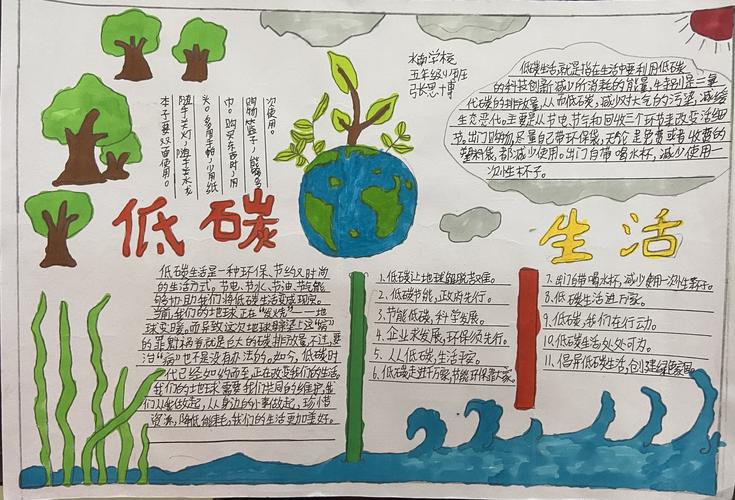 水南学校
五年级小班
张思博
低碳生活,就是指在生活中要利用低碳
的科技创新,减少所消耗的能量,特别是二氧
代碳的排放量,从而低碳,减少对大气的污染,减缓
生态恶化。主要是从节电节气和回收三个环节来改变活细
节。出门购物,尽量自己带环保袋,无论是免费或者收费的
塑料袋,都减少使用。出门自带喝水杯,减少使用一
次性杯子。
次使用。
购物篮子,能够多
巾。购买东西时,用
关。多用手帕,少用纸
随手关灯,随手关水龙
本子要双面使用。
低碳
生活
低碳生活是一种环保、节约又时尚
的生活方式。节电、节水、节油、节气,能
够协助我们将低碳生活变成现实。
当前,我们的地球正在"发烧"——地
球变暖。而导致这次地球瞬"病"
的罪魁祸首就是巨大的碳排放量。不过,要
治"病"也不是没有办法的。如今,低碳时
代已经如约而至,正在改变我们的生活。
我们的地球需要我们共同的维护,我
们从我做起,从身边的小事做起,珍惜
资源,降低能耗,我们的生活更加美好。
1.低碳让地球能脱苦难。
2.低碳节能,政府先行。
3.节能低碳,科学发展。
4.企业求发展,环保须先行。
5.人人低碳,生活丰富。
6.低碳走进千万家,节能环保靠大家。
7.出门自带喝水杯,减少使用一次性杯子。
8.低碳生活进万家。
9.低碳,我们在行动。
10.低碳生活处处可为。
11.倡导低碳生活,创建绿色家园。